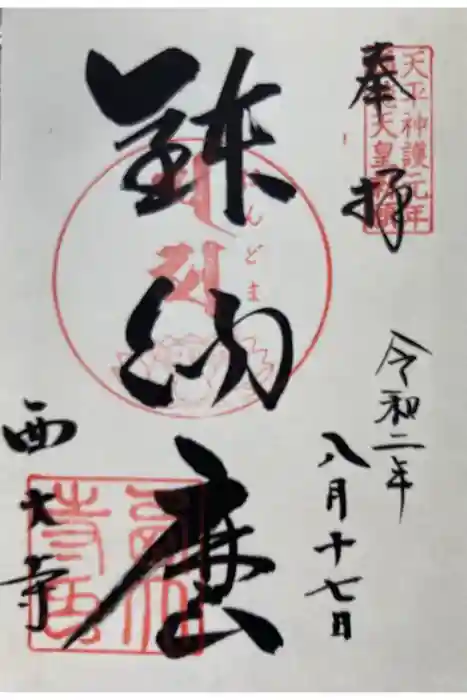 奉拝
天平神護元年
天皇勅願
令和二年
八月十七日
鉢納磨
んどま
西大寺